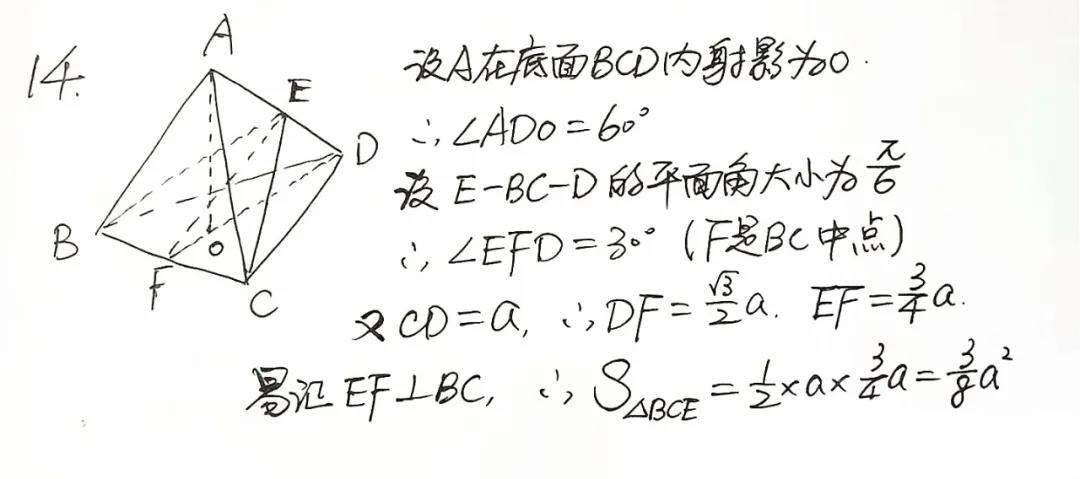 14.
A
E
D
B
O
F
C
设A在底面BCD内射影为O.
∴∠ADO=60°
设E-BC-D的平面角大小为π/6
∴∠EFD=30°(F是BC中点)
又CD=a,∴DF=√3/2a. EF=3/4a.
易记EF⊥BC,∴S△BCE=1/2×a×3/4a=3/8a²